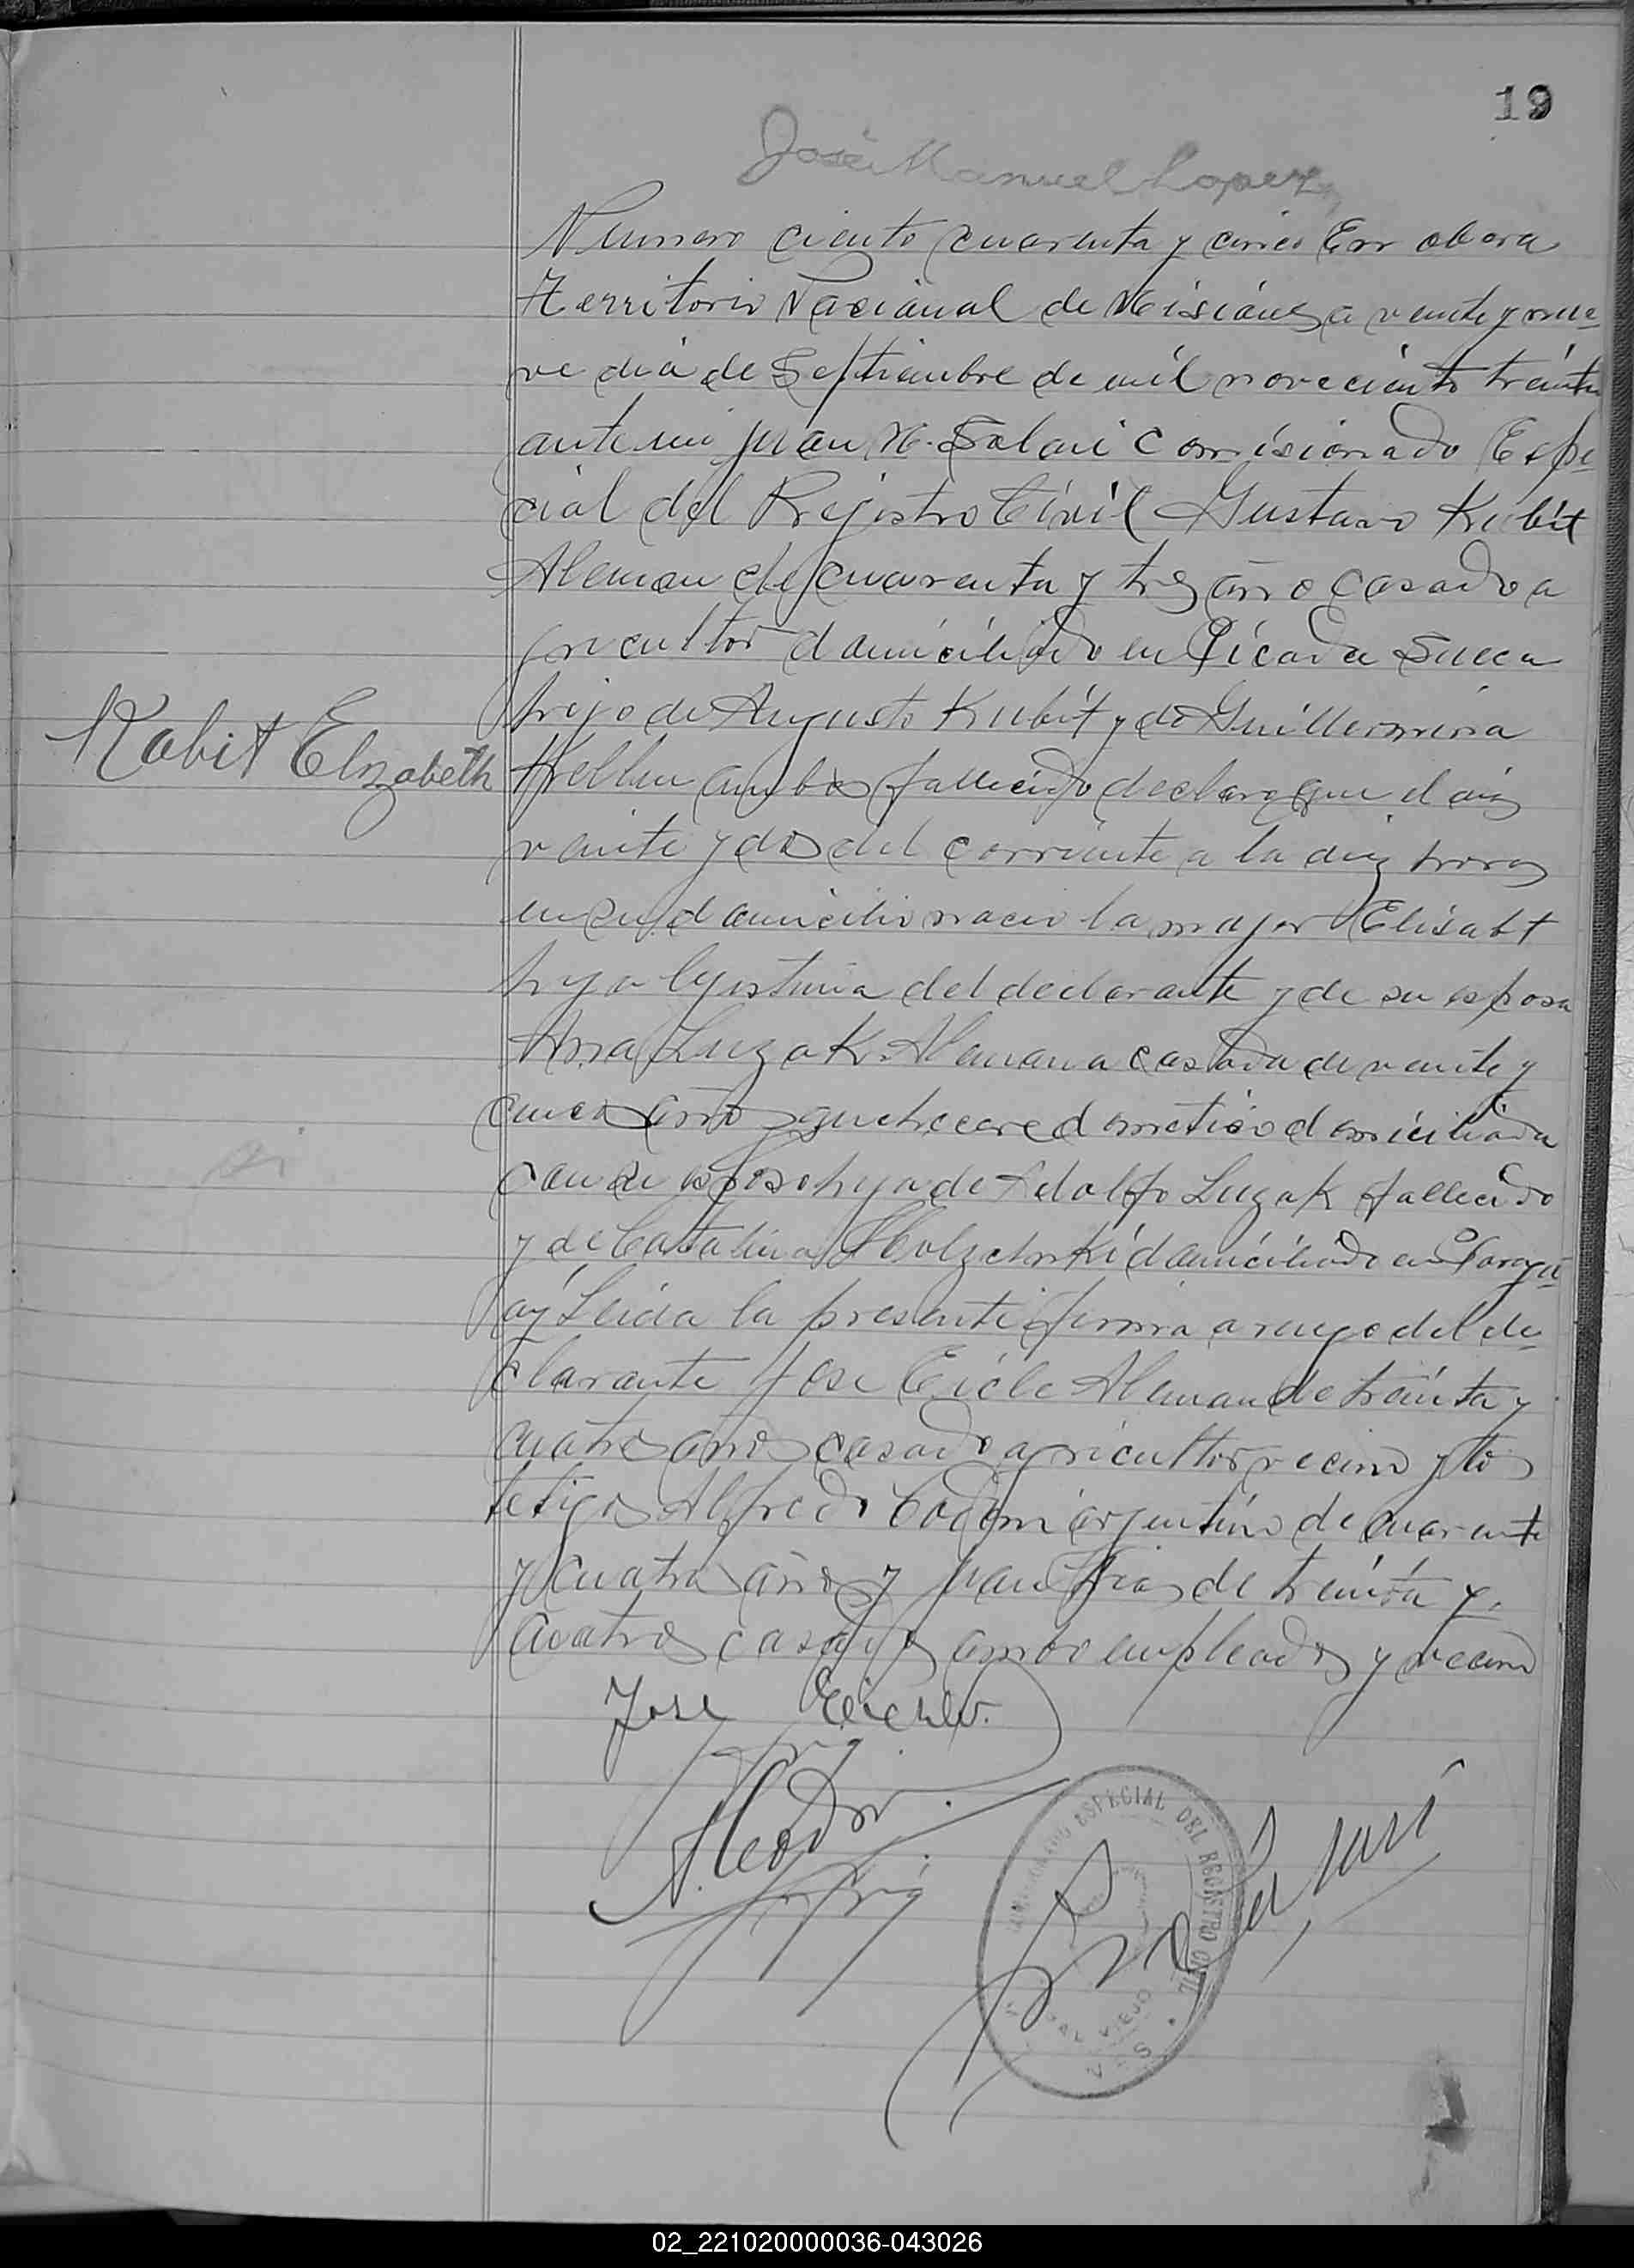 19
José Manuel Lopez
Numero ciento cuarenta y cinco En obera
Territorio Nacional de Misiones a veinte y nue
ve dia de Septiembre de mil noveciento treinta
ante mi Juan N. Solari Comisionado Espe
cial del Rejistro Civil Gustavo Kubit
Aleman de cuarenta y tres año casado a
gricultor domiciliado en Picada Sueca
hijo de Augusto Kubit y de Guillermina
ambos fallecido declara que el dia
veinte y dos del corriente a la diez horas
Kabit Elizabeth
en su domicilio nacio la mujer Elisabt
hija lejitima del declarante y de su esposa
Ana Luzak Alemana casada de veinte y
cinco años quehacere domestico domiciliada
con su esposo hija de Adolfo Luzak fallecido
y de Catalina domiciliado en Paragu
ay Leida la presente firma a ruego del de
clarante Jose Eicle Aleman de treinta y
cuatro años casado agricultor vecino y los
tetigos Alfredo argentino de cuarenta
y cuatro años y Juan de treinta y
cuatro casados ambo empleados y vecino
Jose
ESPECIAL DEL REGISTRO CIVIL
VIEJO